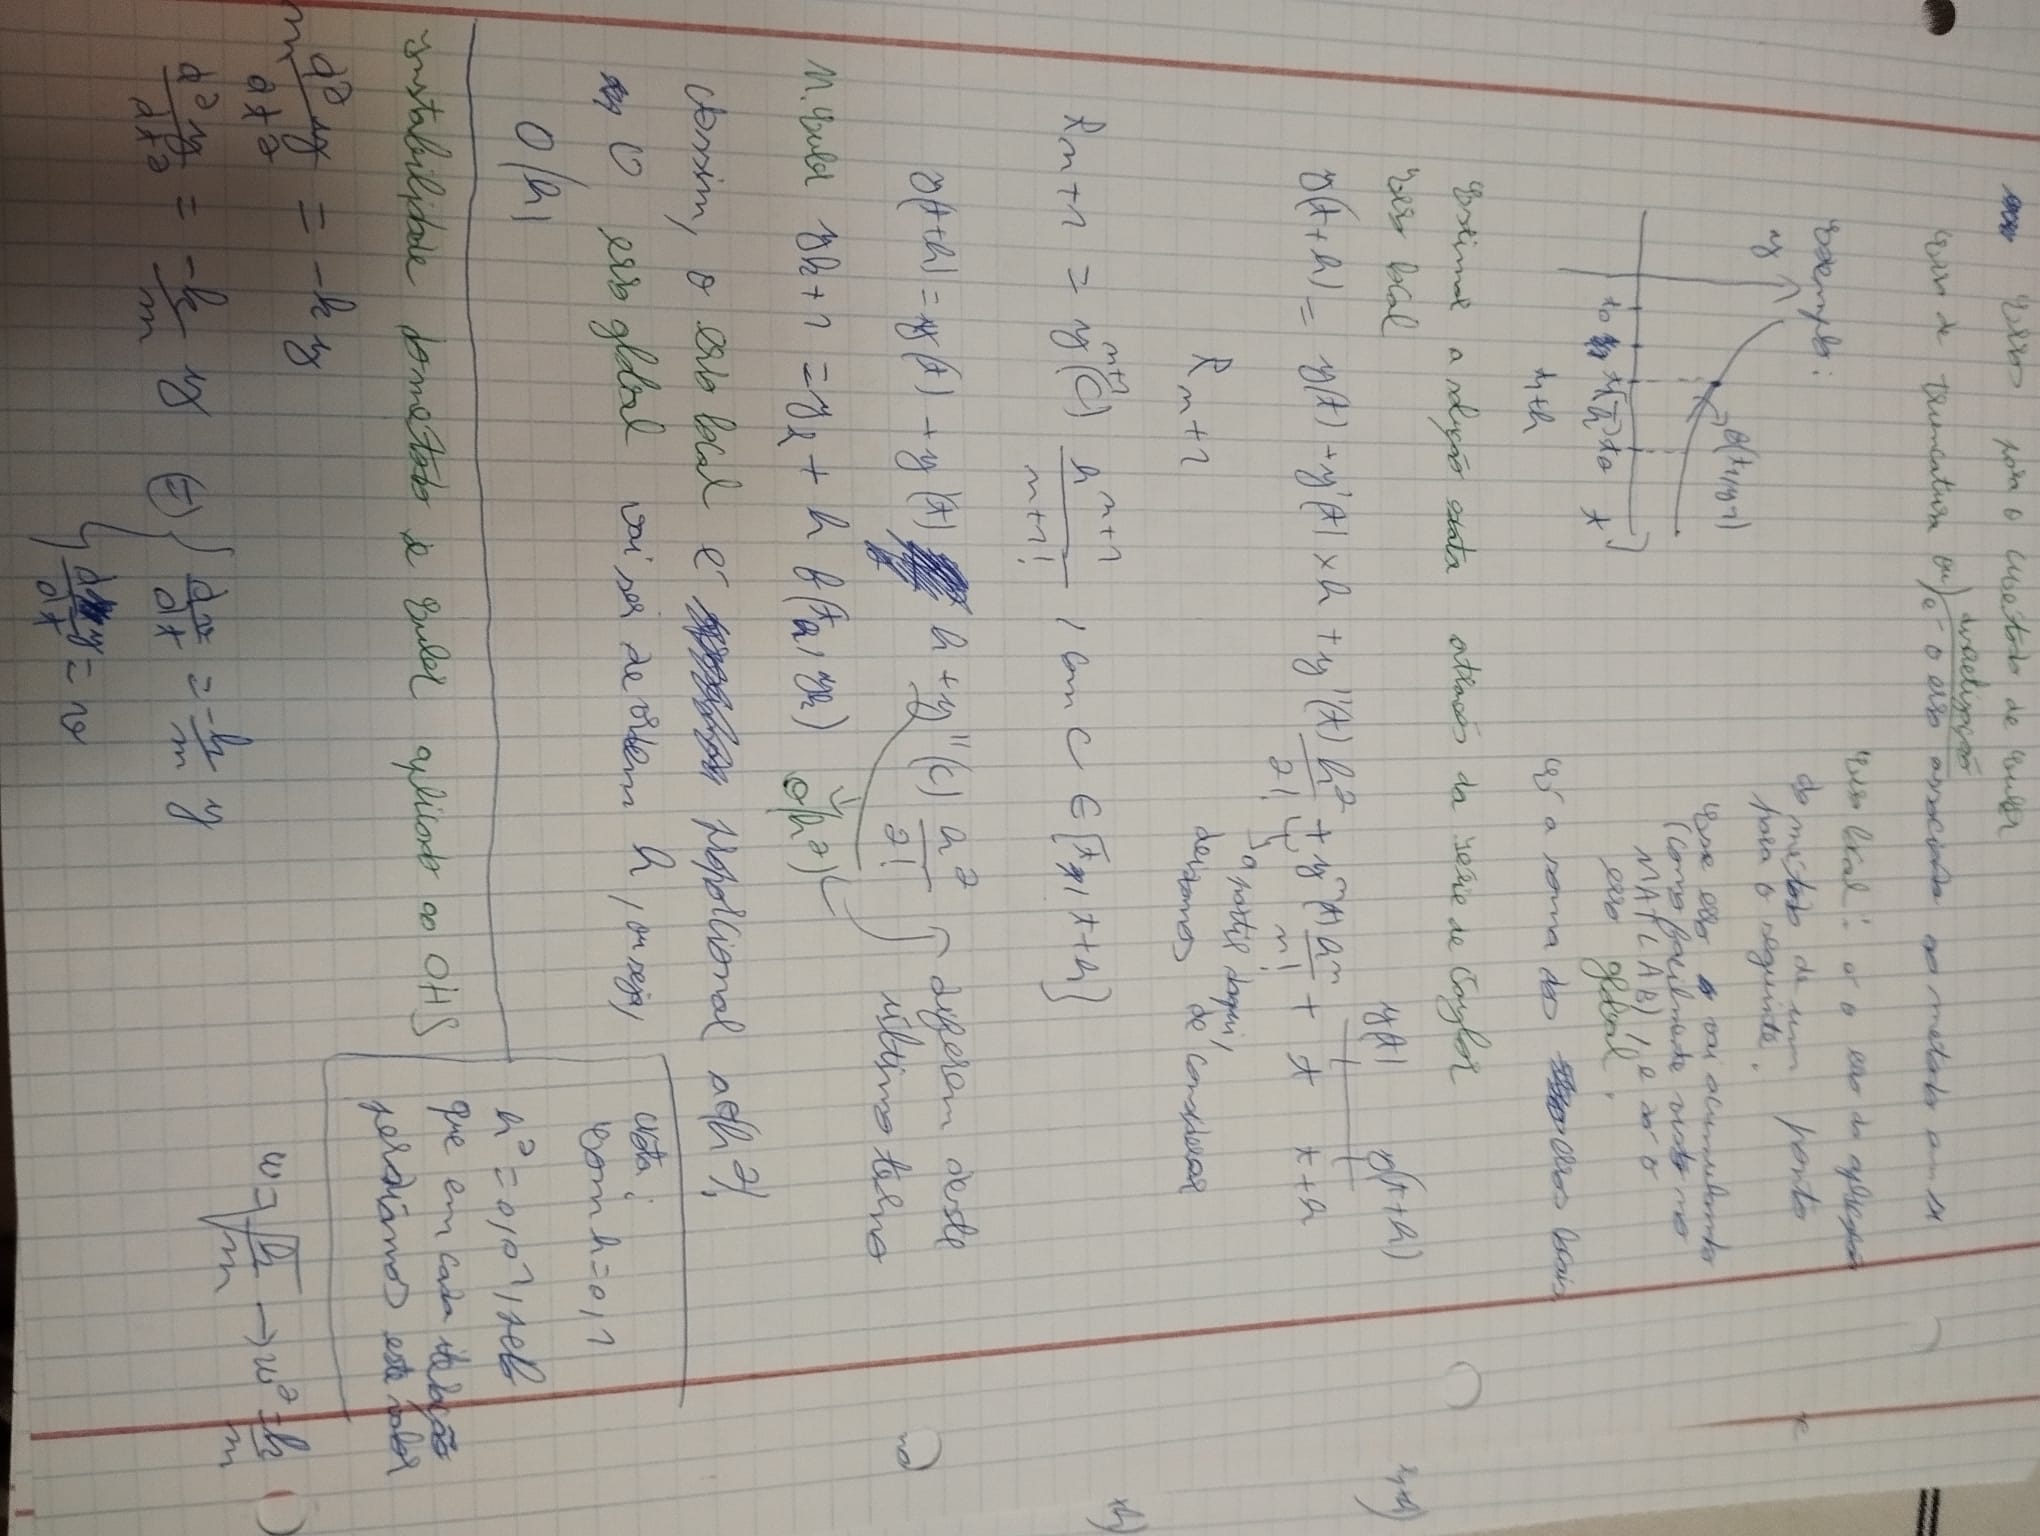 Erros para o método de Euler
discretização
Erro de truncatura ou) é o erro associado ao método em si
Exemplo:
y
θ(t1,y1)
t0 t1 h t2 t
t1+h
Erro local: é o erro da aplicação
do método de um ponto
para o seguinte.
Esse erro vai acumulando
(como facilmente visto no
MATLAB), e só o
erro global.
É a soma dos erros locais
Estimar a solução exata através da série de Taylor
Erro local
y(t) y(t+h)
y(t+h) = y(t) + y'(t) × h + y''(t) h²/2! + yⁿ(t) hⁿ/n! + t t+h
a partir daqui,
deixamos de considerar
Rn+1
Rn+1 = yⁿ⁺¹(c) hⁿ⁺¹/n+1! , com c ∈ [t, t+h]
y(t+h) = y(t) + y'(t) h + y''(c) h²/2! diferem deste
último termo
M. Euler yk+1 = yk + h f(tk, yk) O(h²)
Assim, o erro local é proporcional a O(h²).
O erro global vai ser de ordem h, ou seja,
O(h)
Nota:
Com h=0,1
h²=0,01, pelo
que em cada iteração
perdíamos este valor
Instabilidade do método de Euler aplicado ao OHS
m d²y/dt² = -ky
w = √k/m → w² = k/m
d²y/dt² = -k/m y ⇔ { dv/dt = -k/m y
dy/dt = v